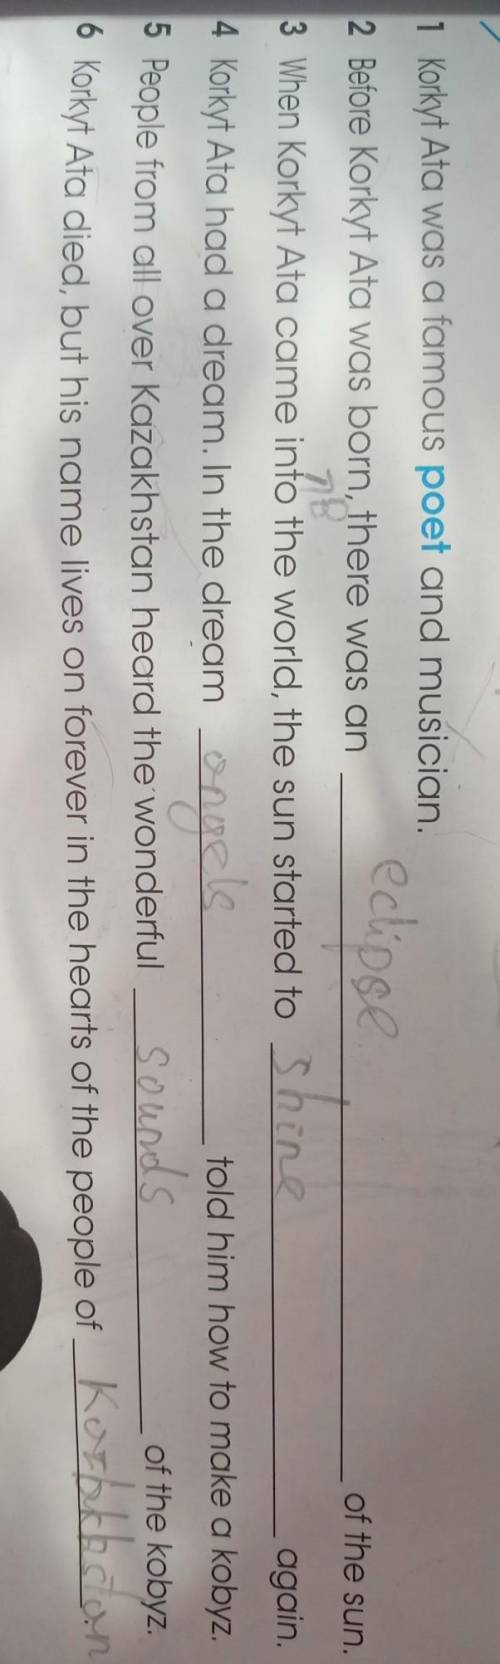 1 Korkyt Ata was a famous poet and musician.
2 Before Korkyt Ata was born, there was an eclipse of the sun.
3 When Korkyt Ata came into the world, the sun started to shine again.
4 Korkyt Ata had a dream. In the dream angels told him how to make a kobyz.
5 People from all over Kazakhstan heard the wonderful sounds of the kobyz.
6 Korkyt Ata died, but his name lives on forever in the hearts of the people of